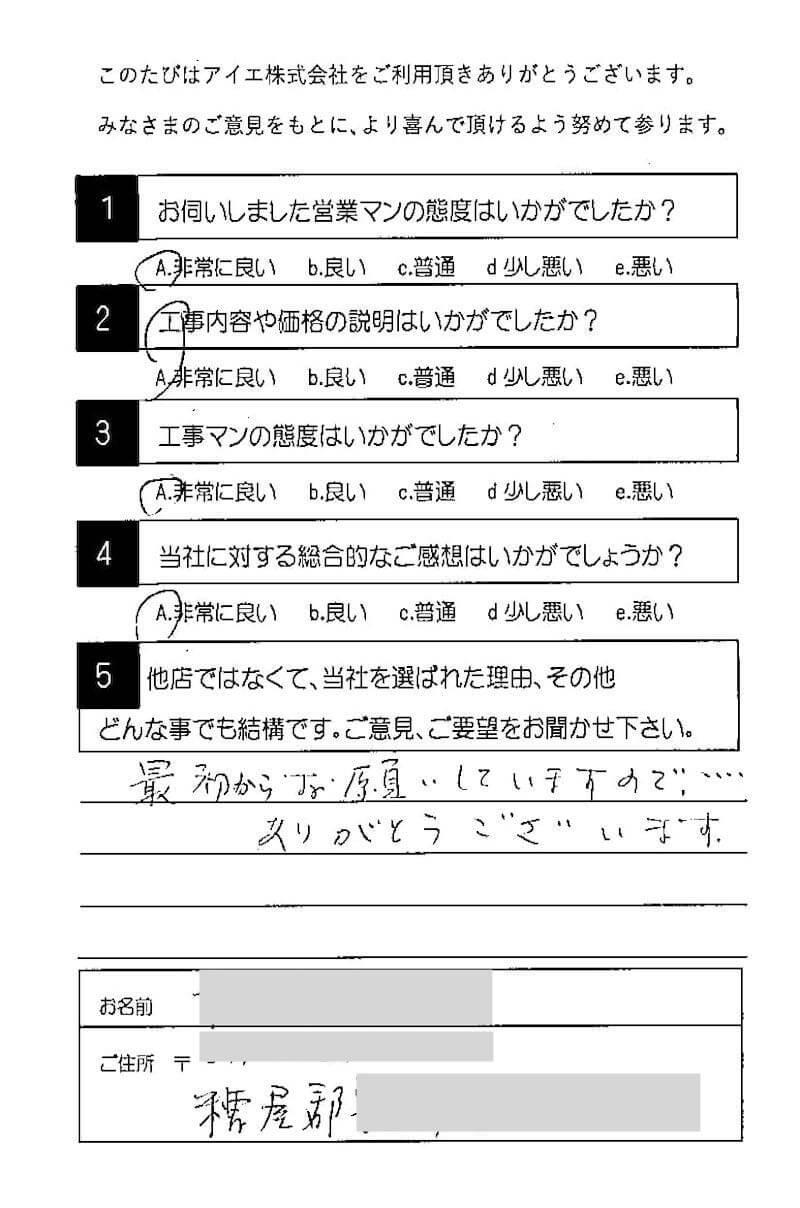 このたびはアイエ株式会社をご利用頂きありがとうございます。
みなさまのご意見をもとに、より喜んで頂けるよう努めて参ります。
1 お伺いしました営業マンの態度はいかがでしたか？
A.非常に良い b.良い c.普通 d 少し悪い e.悪い
2 工事内容や価格の説明はいかがでしたか？
A.非常に良い b.良い c.普通 d 少し悪い e.悪い
3 工事マンの態度はいかがでしたか？
A.非常に良い b.良い c.普通 d 少し悪い e.悪い
4 当社に対する総合的なご感想はいかがでしょうか？
A.非常に良い b.良い c.普通 d 少し悪い e.悪い
5 他店ではなくて、当社を選ばれた理由、その他
どんな事でも結構です。ご意見、ご要望をお聞かせ下さい。
最初からお願いしていますので、....
ありがとうございます.
お名前
ご住所 〒
糟屋郡